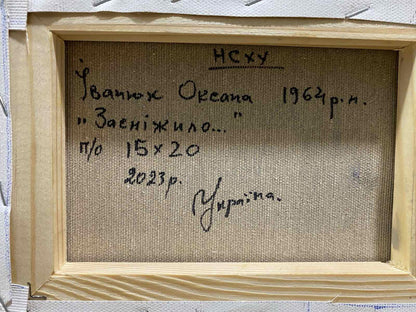 НСХУ
Іванюк Оксана 1964 р.н.
"Засніжило..."
п/о 15х20
2023р.
Україна.